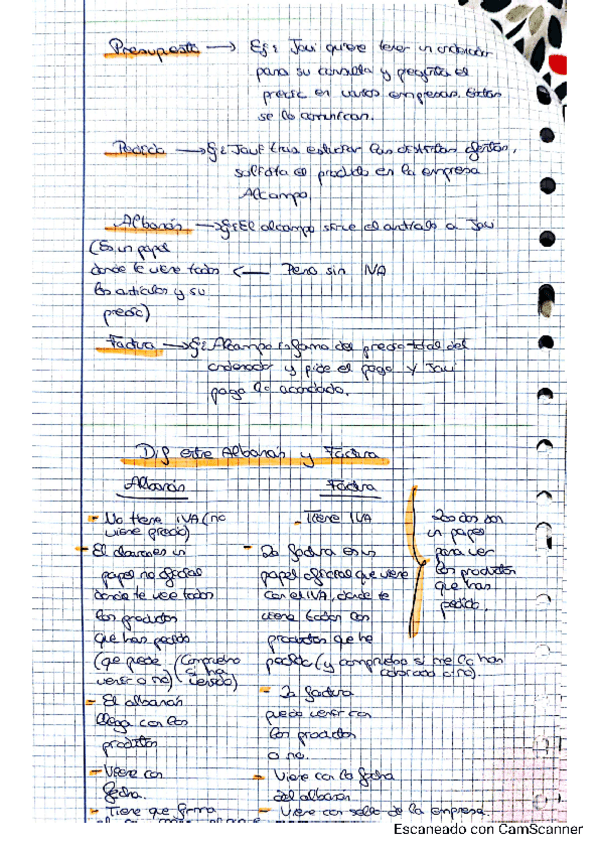 Presupuesto → Ej: Javi quiere tener un ordenador
para su consulta y pregunta el
precio en varias empresas. Estas
se lo comunican.
Pedido → Ej: Javi tras estudiar las distintas ofertas,
solicita el producto en la empresa
Alcampo.
Albarán → Ej: El alcampo sirve el a Javi
(Es un papel
donde te viene todos ← Pero sin IVA
los artículos y su
precio)
Factura → Ej: Alcampo informa del precio total del
ordenador y pide el pago y Javi
paga lo acordado.
Dif entre Albarán y Factura
Albarán
Factura
- No tiene IVA (no
viene precio)
- El albarán es un
papel no oficial
donde te viene todos
los productos
que han pedido
(que puede
venir o no)
(Compruebo
si ha
)
- El albarán
llega con los
productos
- Viene con
fecha.
- Tiene que firma
- Tiene IVA
- La factura es un
papel oficial que viene
con el IVA, donde te
viene todos los
productos que he
pedido (y compruebo si me lo han
cobrado o no)
- La factura
puede venir con
los productos
o no.
- Viene con la fecha
del albarán
- Viene con sello de la empresa.
Los dos son
un papel
para ver
los productos
que has
pedido.
Escaneado con CamScanner